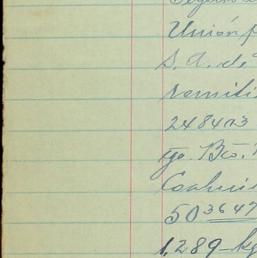 Unión
S. A. de
remiti
248473
Bco.
Coahui
503647
1,289 kg